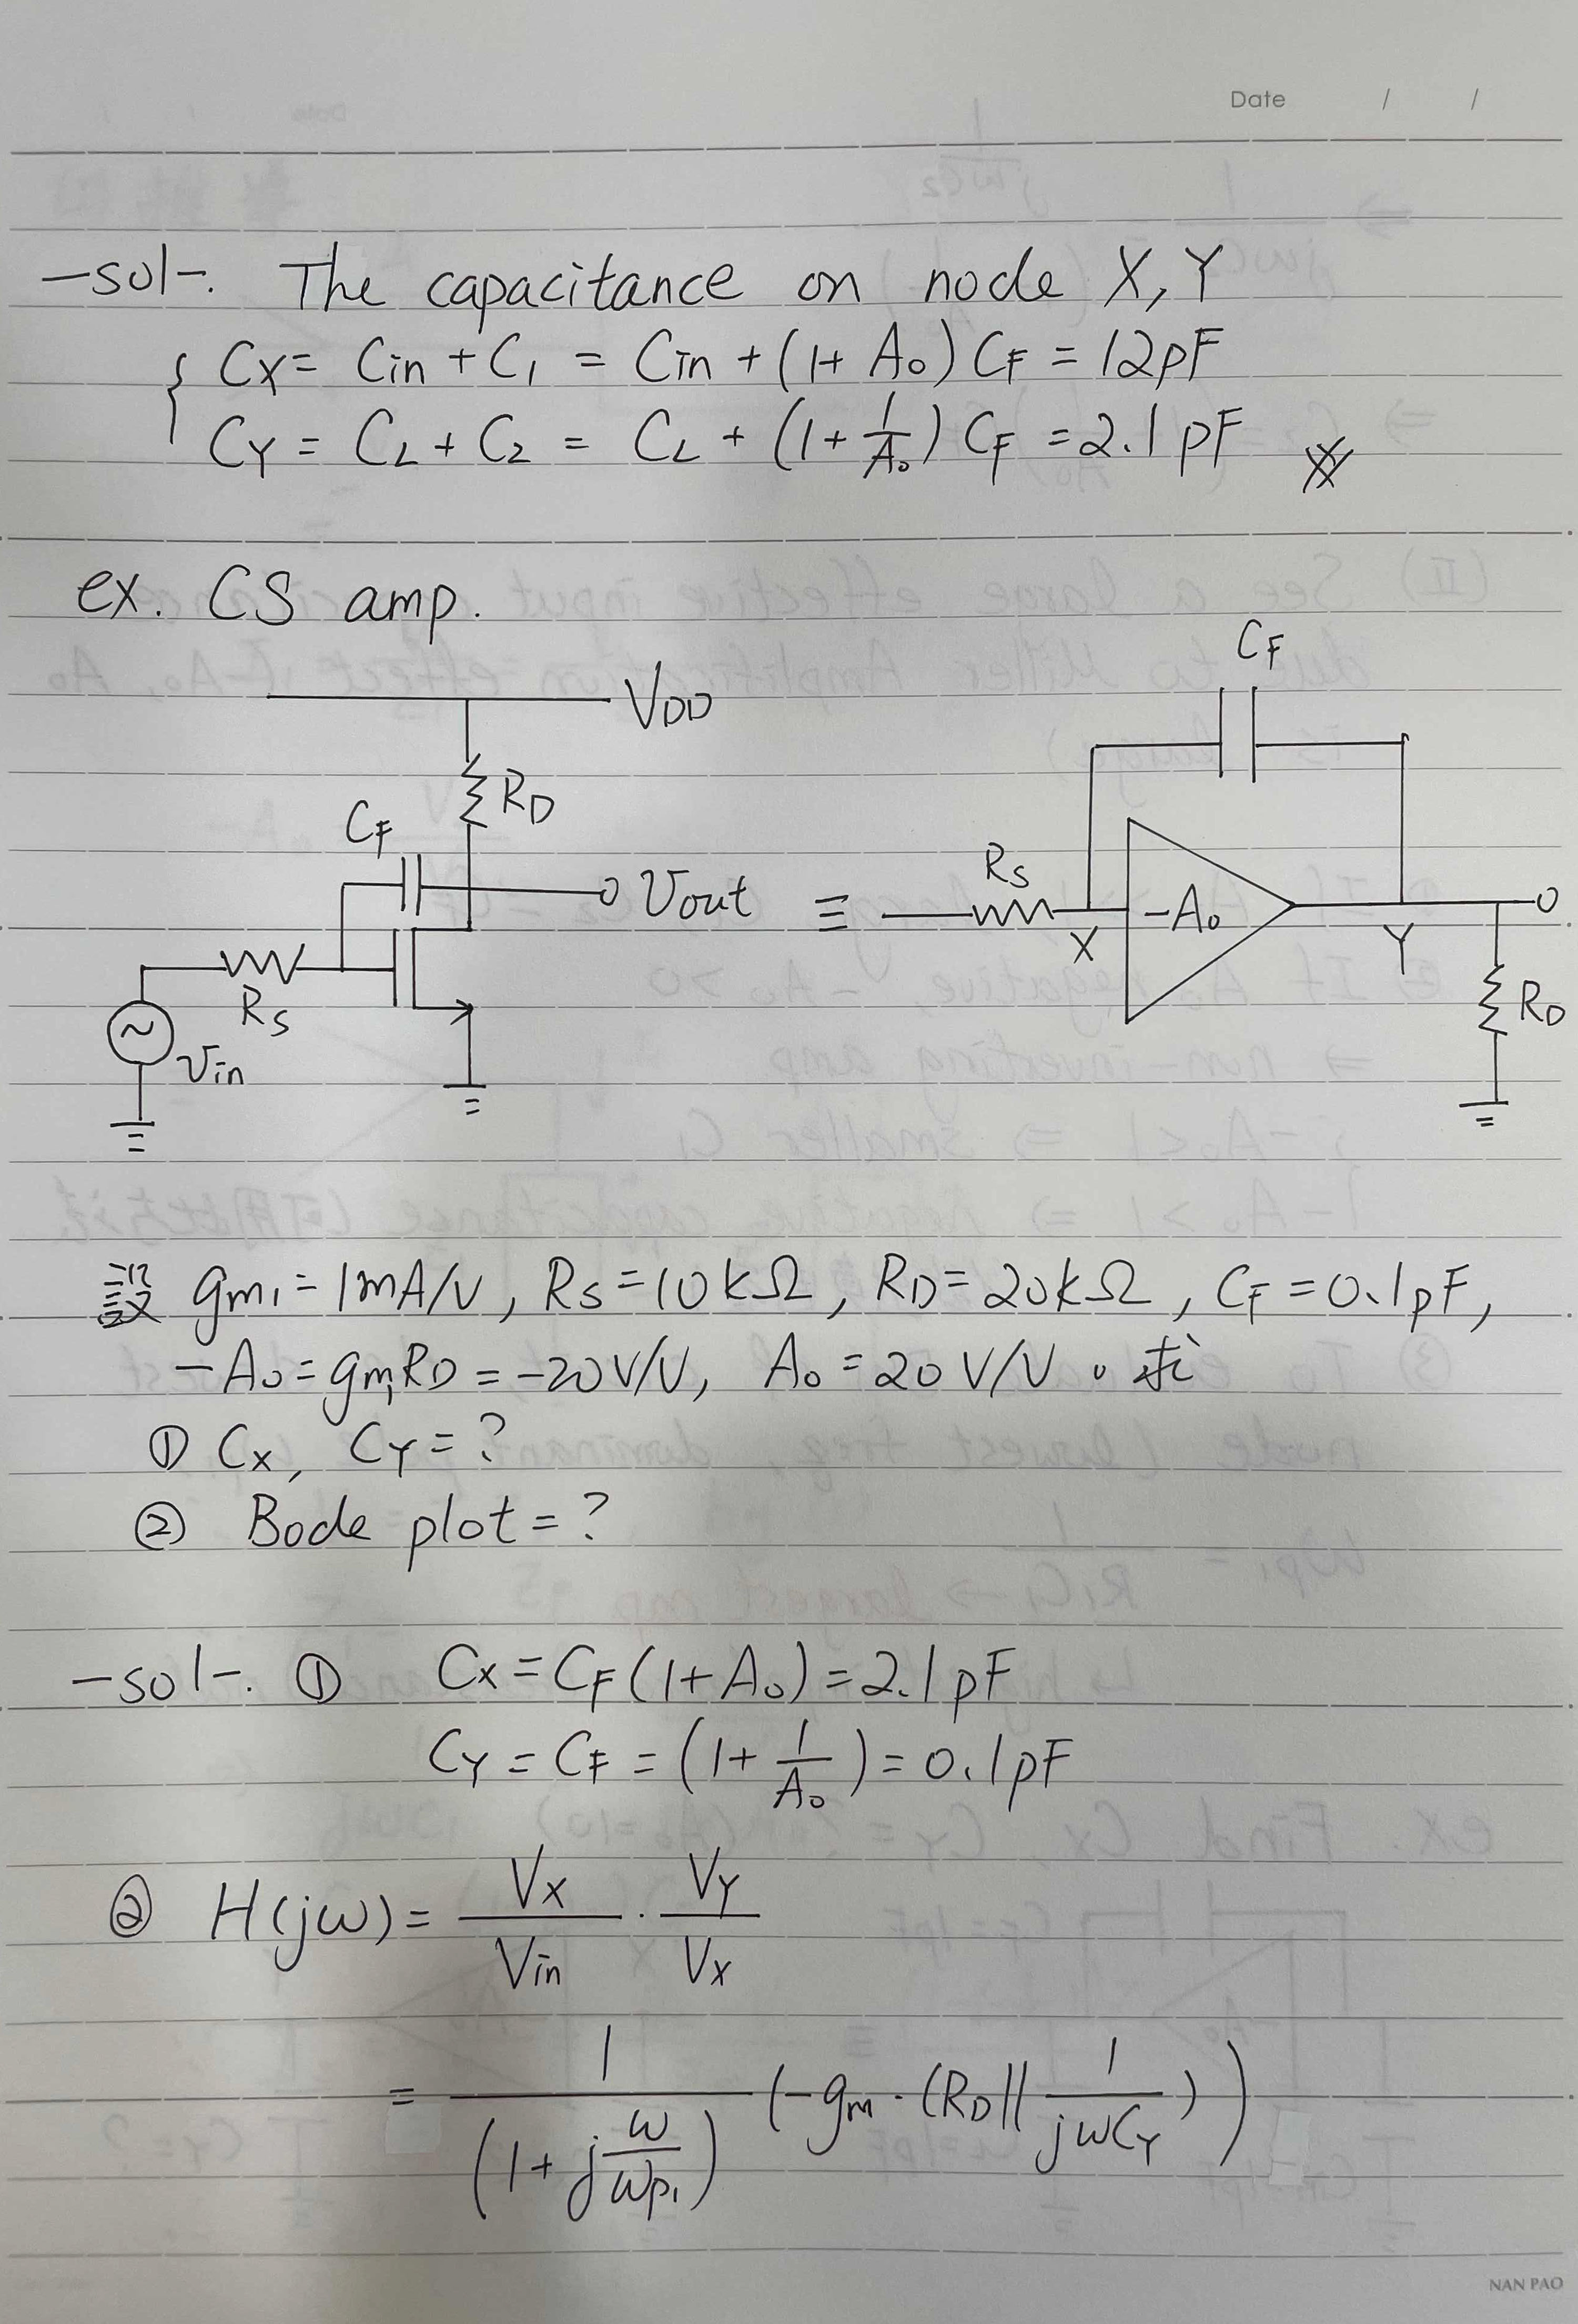 Date / /
-sol-. The capacitance on node X, Y
{ Cx = Cin + C₁ = Cin + (1+ A₀) CF = 12pF
CY = CL + C₂ = CL + (1+ 1/A₀) CF = 2.1 pF
ex. CS amp.
CF
VDD
RD
CF
Vout ≡
Rs
-A₀
X
Y
Rs
RD
Vin
設 gm₁ = 1mA/V, Rs = 10kΩ, RD = 20kΩ, CF = 0.1pF,
-A₀ = gm₁RD = -20V/V, A₀ = 20 V/V。求
① Cx, CY = ?
② Bode plot = ?
-sol-. ① Cx = CF (1+A₀) = 2.1pF
CY = CF = (1+ 1/A₀) = 0.1pF
② H(jω) = Vx/Vin · VY/Vx
= 1/(1+j ω/ωp₁) (-gm · (RD || 1/jωCY))
NAN PAO